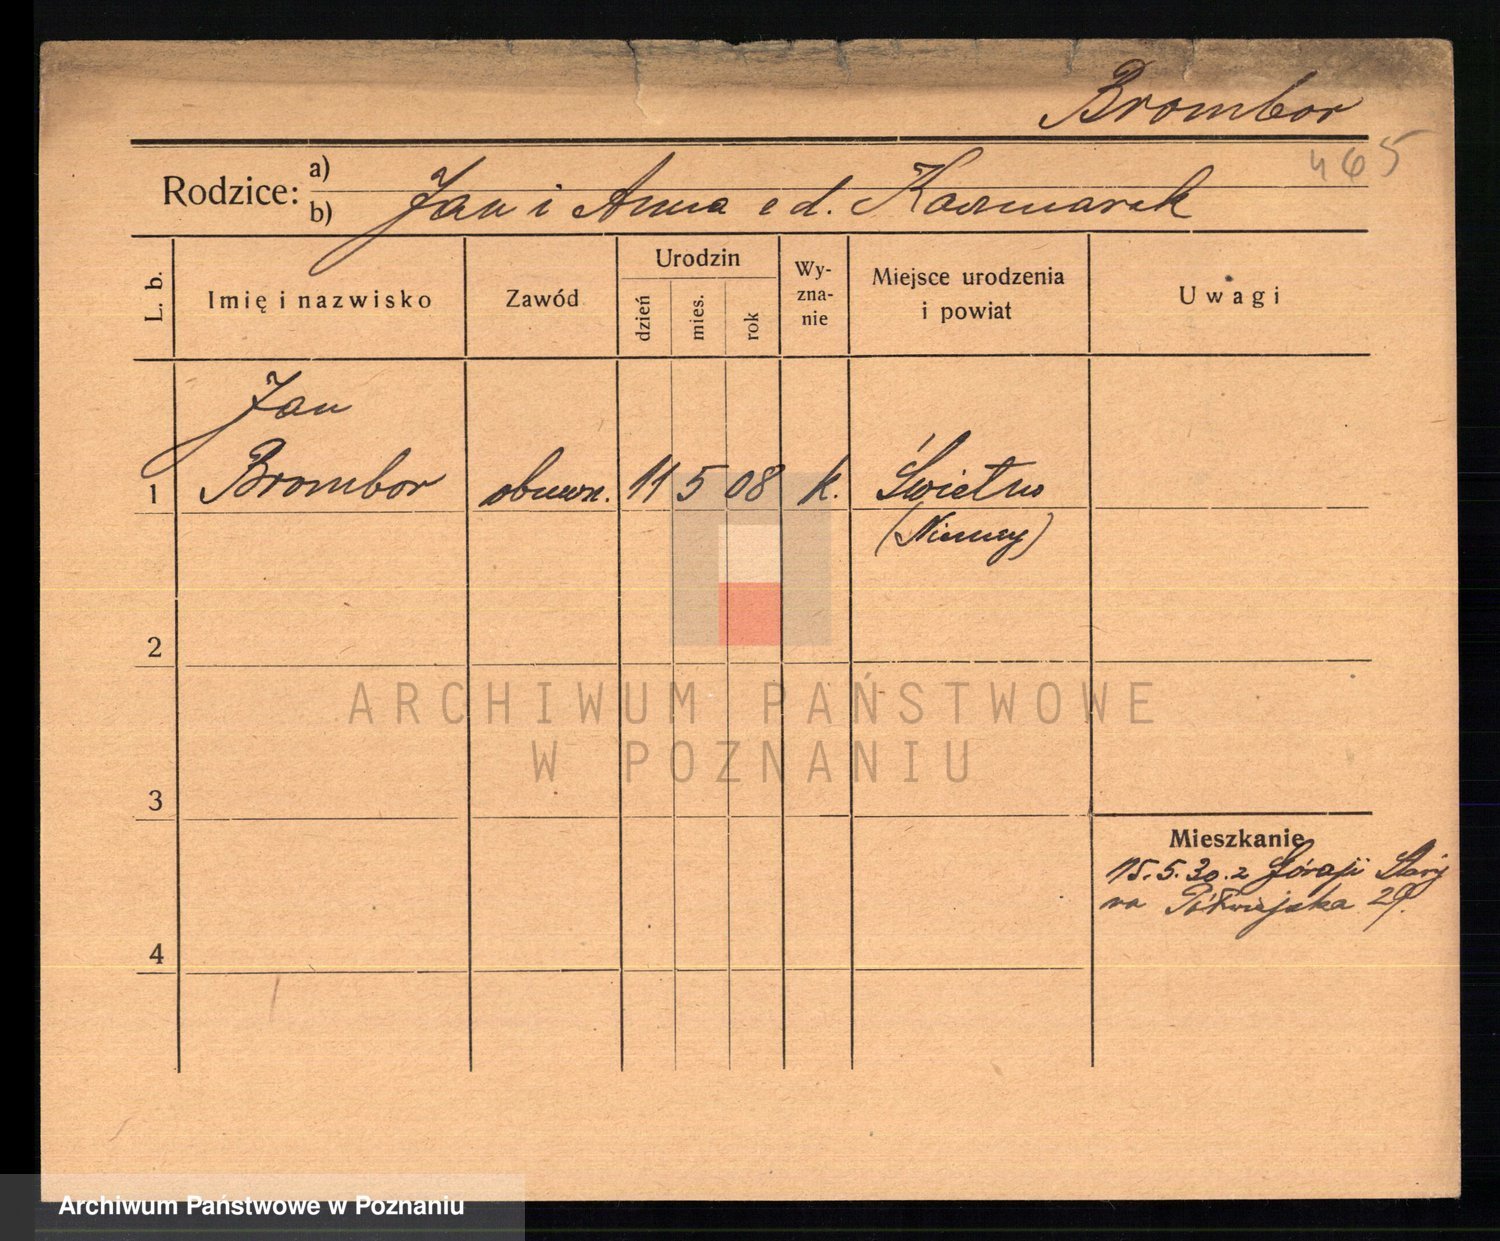 Brombor
465
Rodzice: a)
b) Jan i Anna z d. Kaczmarek
L. b.
Imię i nazwisko
Zawód
Urodzin
dzień
mies.
rok
Wy-
zna-
nie
Miejsce urodzenia
i powiat
Uwagi
Jan
1 Brombor obuwn. 11 5 08 k. Świetno
(Niemcy)
2
3
4
Mieszkanie
15.5.30. z
na Półwiejska 29.
ARCHIWUM PAŃSTWOWE
W POZNANIU
Archiwum Państwowe w Poznaniu